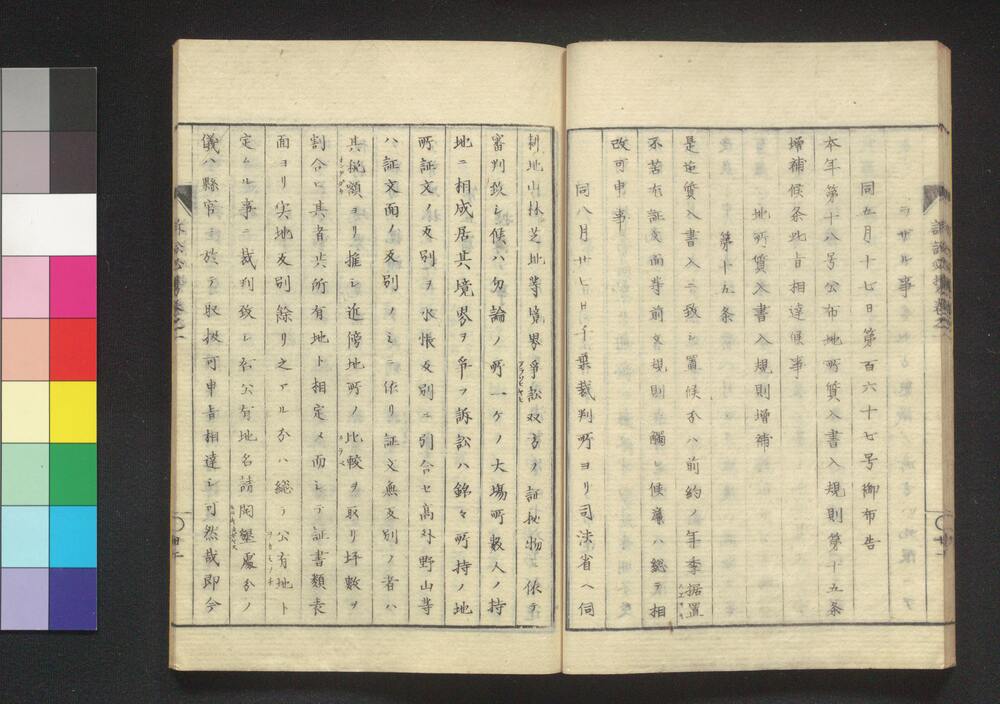 ヲサル事
同五月十七日第百六十七号御布告
本年第十八号公布地所質入書入規則第十五条
増補候条此旨相達候事
地所質入書入規則増補
第十五条
是迄質入書入ニ致シ置候分ハ前約ノ年季据置
不苦尤証文面等前文規則ニ觸レ候廉ハ総テ相
改可申事
同八月廿七日千葉裁判所ヨリ司法省ヘ伺
耕地山林芝地等境界爭訟双方ノ証拠物ニ依テ
審判致シ候ハ勿論ノ所一ケノ大場所数人ノ持
地ニ相成居其境界ヲ爭フ訴訟ハ銘々所持ノ地
所証文ノ反別ヲ水帳反別ニ引合セ高外野山等
ハ証文面ノ反別ノミニ依リ証文無反別ノ者ハ
其税額ヨリ推シ近傍地所ノ比較ヲ取リ坪数ヲ
割合ヒ其者共所有地ト相定メ而シテ証書類表
面ヨリ実地反別餘リ之アル分ハ総テ公有地ト
定ムル事ニ裁判致シ右公有地名請開墾處分ノ
儀ハ縣官ニ於テ取扱可申旨相達シ可然哉即今